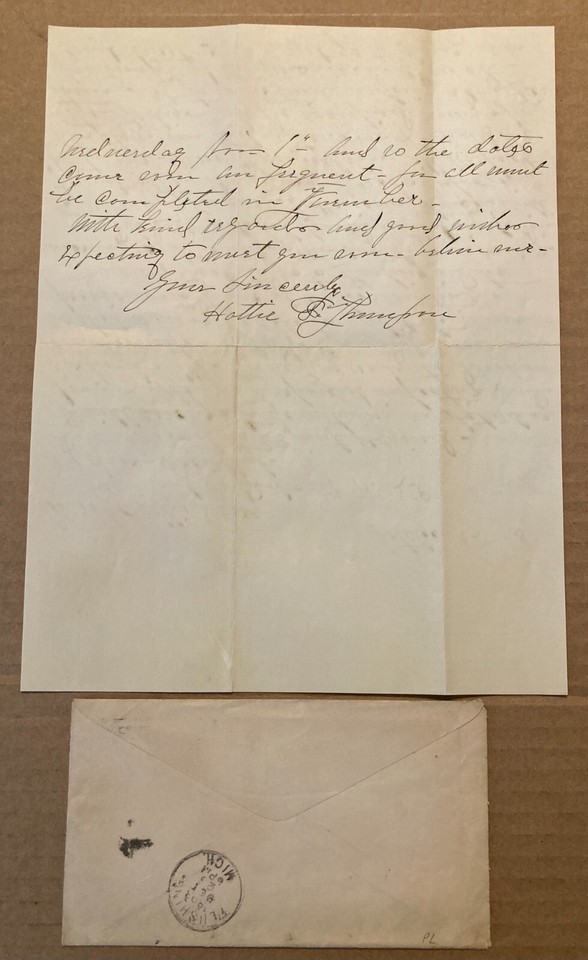 Wednesday Nov 1st and so the dates
come soon and frequent - for all must
be completed in November -
With kind regards and good wishes
Expecting to meet you soon - believe me -
Yours Sincerely
Hattie Thompson
FLUSHING
MICH.
6 PM
PL